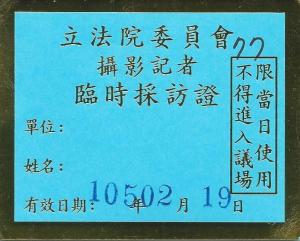 立法院委員會
77
攝影記者
臨時採訪證
限當日使用
不得進入議場
單位：
姓名：
有效日期：105年02月19日